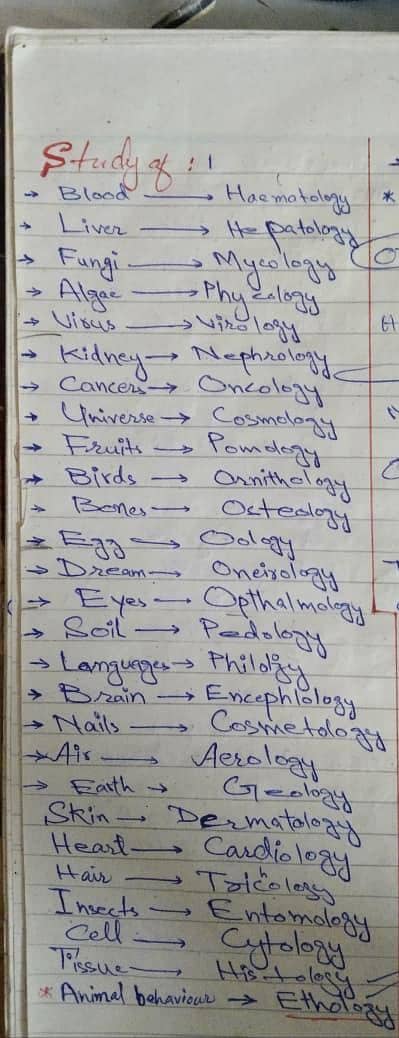 Study of : 1
→ Blood → Haematology
→ Liver → Hepatology
→ Fungi → Mycology
→ Algae → Phycology
→ Virus → Virology
→ Kidney → Nephrology
→ Cancer → Oncology
→ Universe → Cosmology
→ Fruits → Pomology
→ Birds → Ornithology
→ Bones → Osteology
→ Egg → Oology
→ Dream → Oneirology
→ Eyes → Opthalmology
→ Soil → Pedology
→ Languages → Philolgy
→ Brain → Encephlology
→ Nails → Cosmetology
→ Air → Aerology
→ Earth → Geology
Skin → Dermatology
Heart → Cardiology
Hair → Tricology
Insects → Entomology
Cell → Cytology
Tissue → Histology
* Animal behaviour → Ethology